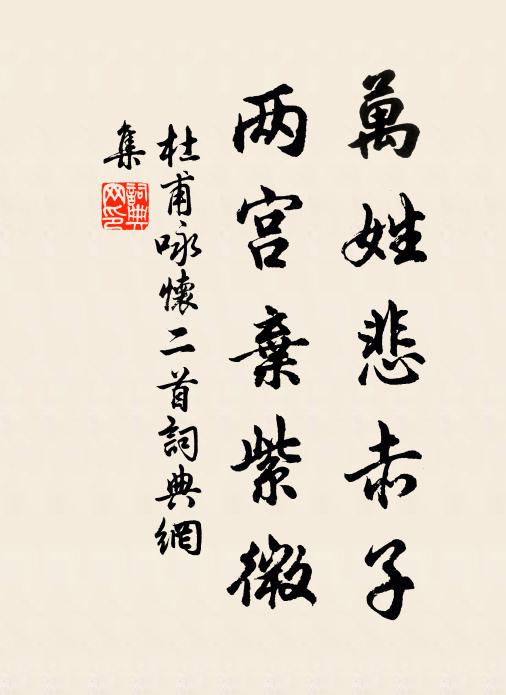 萬姓悲赤子
两宫棄紫微
杜甫咏懷二首詞典網
集
詞典网印